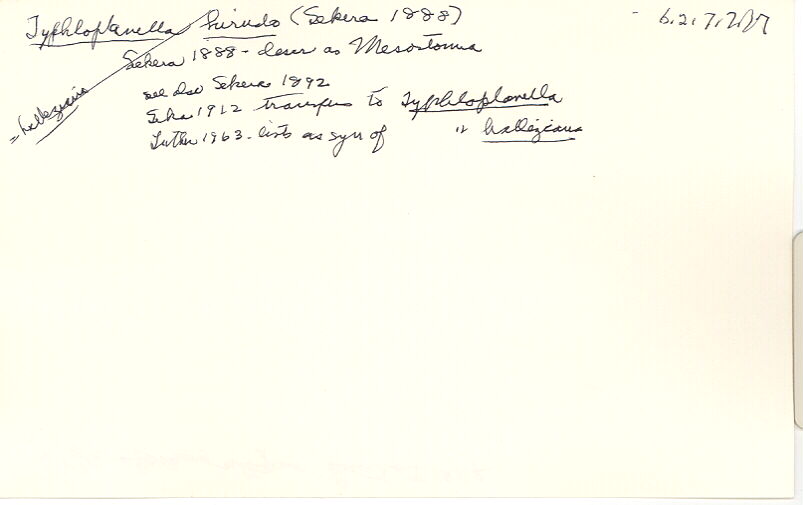 Typhloplanella hirudo (Sekera 1888)
6.2.7.7.
Sekera 1888 - descr as Mesostoma
see also Sekera 1892
= halleziana
Seka 1912 transfers to Typhloplanella
Luther 1963 - lists as syn of " halleziana